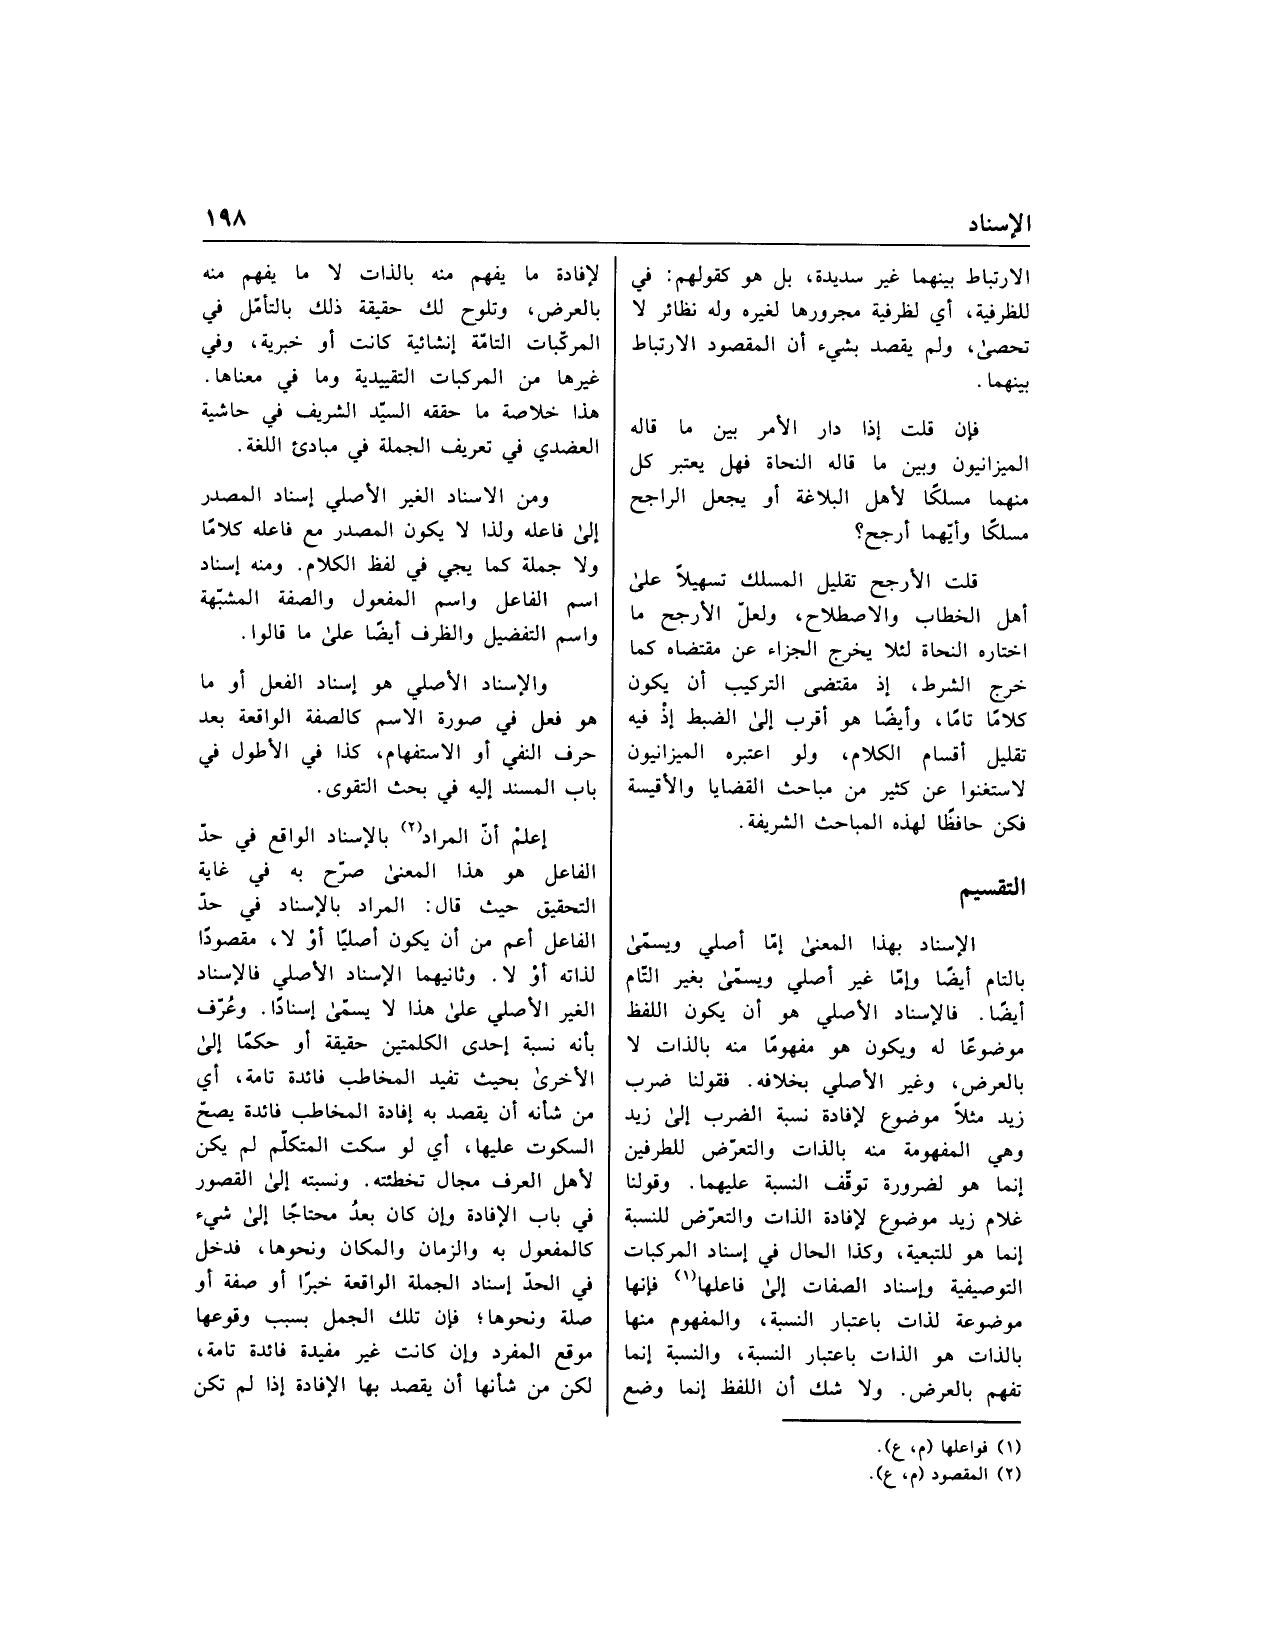 الإسناد
١٩٨
الارتباط بينهما غير سديدة، بل هو كقولهم: في
للظرفية، أي لظرفية مجرورها لغيره وله نظائر لا
تحصىٰ، ولم يقصد بشيء أن المقصود الارتباط
بينهما.
فإن قلت إذا دار الأمر بين ما قاله
الميزانيون وبين ما قاله النحاة فهل يعتبر كل
منهما مسلكًا لأهل البلاغة أو يجعل الراجح
مسلكًا وأيّهما أرجح؟
قلت الأرجح تقليل المسلك تسهيلاً علىٰ
أهل الخطاب والاصطلاح، ولعلّ الأرجح ما
اختاره النحاة لئلا يخرج الجزاء عن مقتضاه كما
خرج الشرط، إذ مقتضى التركيب أن يكون
كلامًا تامًا، وأيضًا هو أقرب إلىٰ الضبط إذْ فيه
تقليل أقسام الكلام، ولو اعتبره الميزانيون
لاستغنوا عن كثير من مباحث القضايا والأقيسة
فكن حافظًا لهذه المباحث الشريفة.
التقسيم
الإسناد بهذا المعنىٰ إمّا أصلي ويسمّىٰ
بالتام أيضًا وإمّا غير أصلي ويسمّىٰ بغير التّام
أيضًا. فالإسناد الأصلي هو أن يكون اللفظ
موضوعًا له ويكون هو مفهومًا منه بالذات لا
بالعرض، وغير الأصلي بخلافه. فقولنا ضرب
زيد مثلاً موضوع لإفادة نسبة الضرب إلىٰ زيد
وهي المفهومة منه بالذات والتعرّض للطرفين
إنما هو لضرورة توقّف النسبة عليهما. وقولنا
غلام زيد موضوع لإفادة الذات والتعرّض للنسبة
إنما هو للتبعية، وكذا الحال في إسناد المركبات
التوصيفية وإسناد الصفات إلىٰ فاعلها(١) فإنها
موضوعة لذات باعتبار النسبة، والمفهوم منها
بالذات هو الذات باعتبار النسبة، والنسبة إنما
تفهم بالعرض. ولا شك أن اللفظ إنما وضع
لإفادة ما يفهم منه بالذات لا ما يفهم منه
بالعرض، وتلوح لك حقيقة ذلك بالتأمّل في
المركّبات التامّة إنشائية كانت أو خبرية، وفي
غيرها من المركبات التقييدية وما في معناها.
هذا خلاصة ما حققه السيّد الشريف في حاشية
العضدي في تعريف الجملة في مبادئ اللغة.
ومن الاسناد الغير الأصلي إسناد المصدر
إلىٰ فاعله ولذا لا يكون المصدر مع فاعله كلامًا
ولا جملة كما يجي في لفظ الكلام. ومنه إسناد
اسم الفاعل واسم المفعول والصفة المشبّهة
واسم التفضيل والظرف أيضًا علىٰ ما قالوا.
والإسناد الأصلي هو إسناد الفعل أو ما
هو فعل في صورة الاسم كالصفة الواقعة بعد
حرف النفي أو الاستفهام، كذا في الأطول في
باب المسند إليه في بحث التقوى.
إعلمْ أنّ المراد(٢) بالإسناد الواقع في حدّ
الفاعل هو هذا المعنىٰ صرّح به في غاية
التحقيق حيث قال: المراد بالإسناد في حدّ
الفاعل أعم من أن يكون أصليًا أوْ لا، مقصودًا
لذاته أوْ لا. وثانيهما الإسناد الأصلي فالإسناد
الغير الأصلي علىٰ هذا لا يسمّىٰ إسنادًا. وعُرّف
بأنه نسبة إحدى الكلمتين حقيقة أو حكمًا إلىٰ
الأخرىٰ بحيث تفيد المخاطب فائدة تامة، أي
من شأنه أن يقصد به إفادة المخاطب فائدة يصحّ
السكوت عليها، أي لو سكت المتكلّم لم يكن
لأهل العرف مجال تخطئته. ونسبته إلىٰ القصور
في باب الإفادة وإن كان بعدُ محتاجًا إلىٰ شيء
كالمفعول به والزمان والمكان ونحوها، فدخل
في الحدّ إسناد الجملة الواقعة خبرًا أو صفة أو
صلة ونحوها؛ فإن تلك الجمل بسبب وقوعها
موقع المفرد وإن كانت غير مفيدة فائدة تامة،
لكن من شأنها أن يقصد بها الإفادة إذا لم تكن
(١) فواعلها (م، ع).
(٢) المقصود (م، ع).